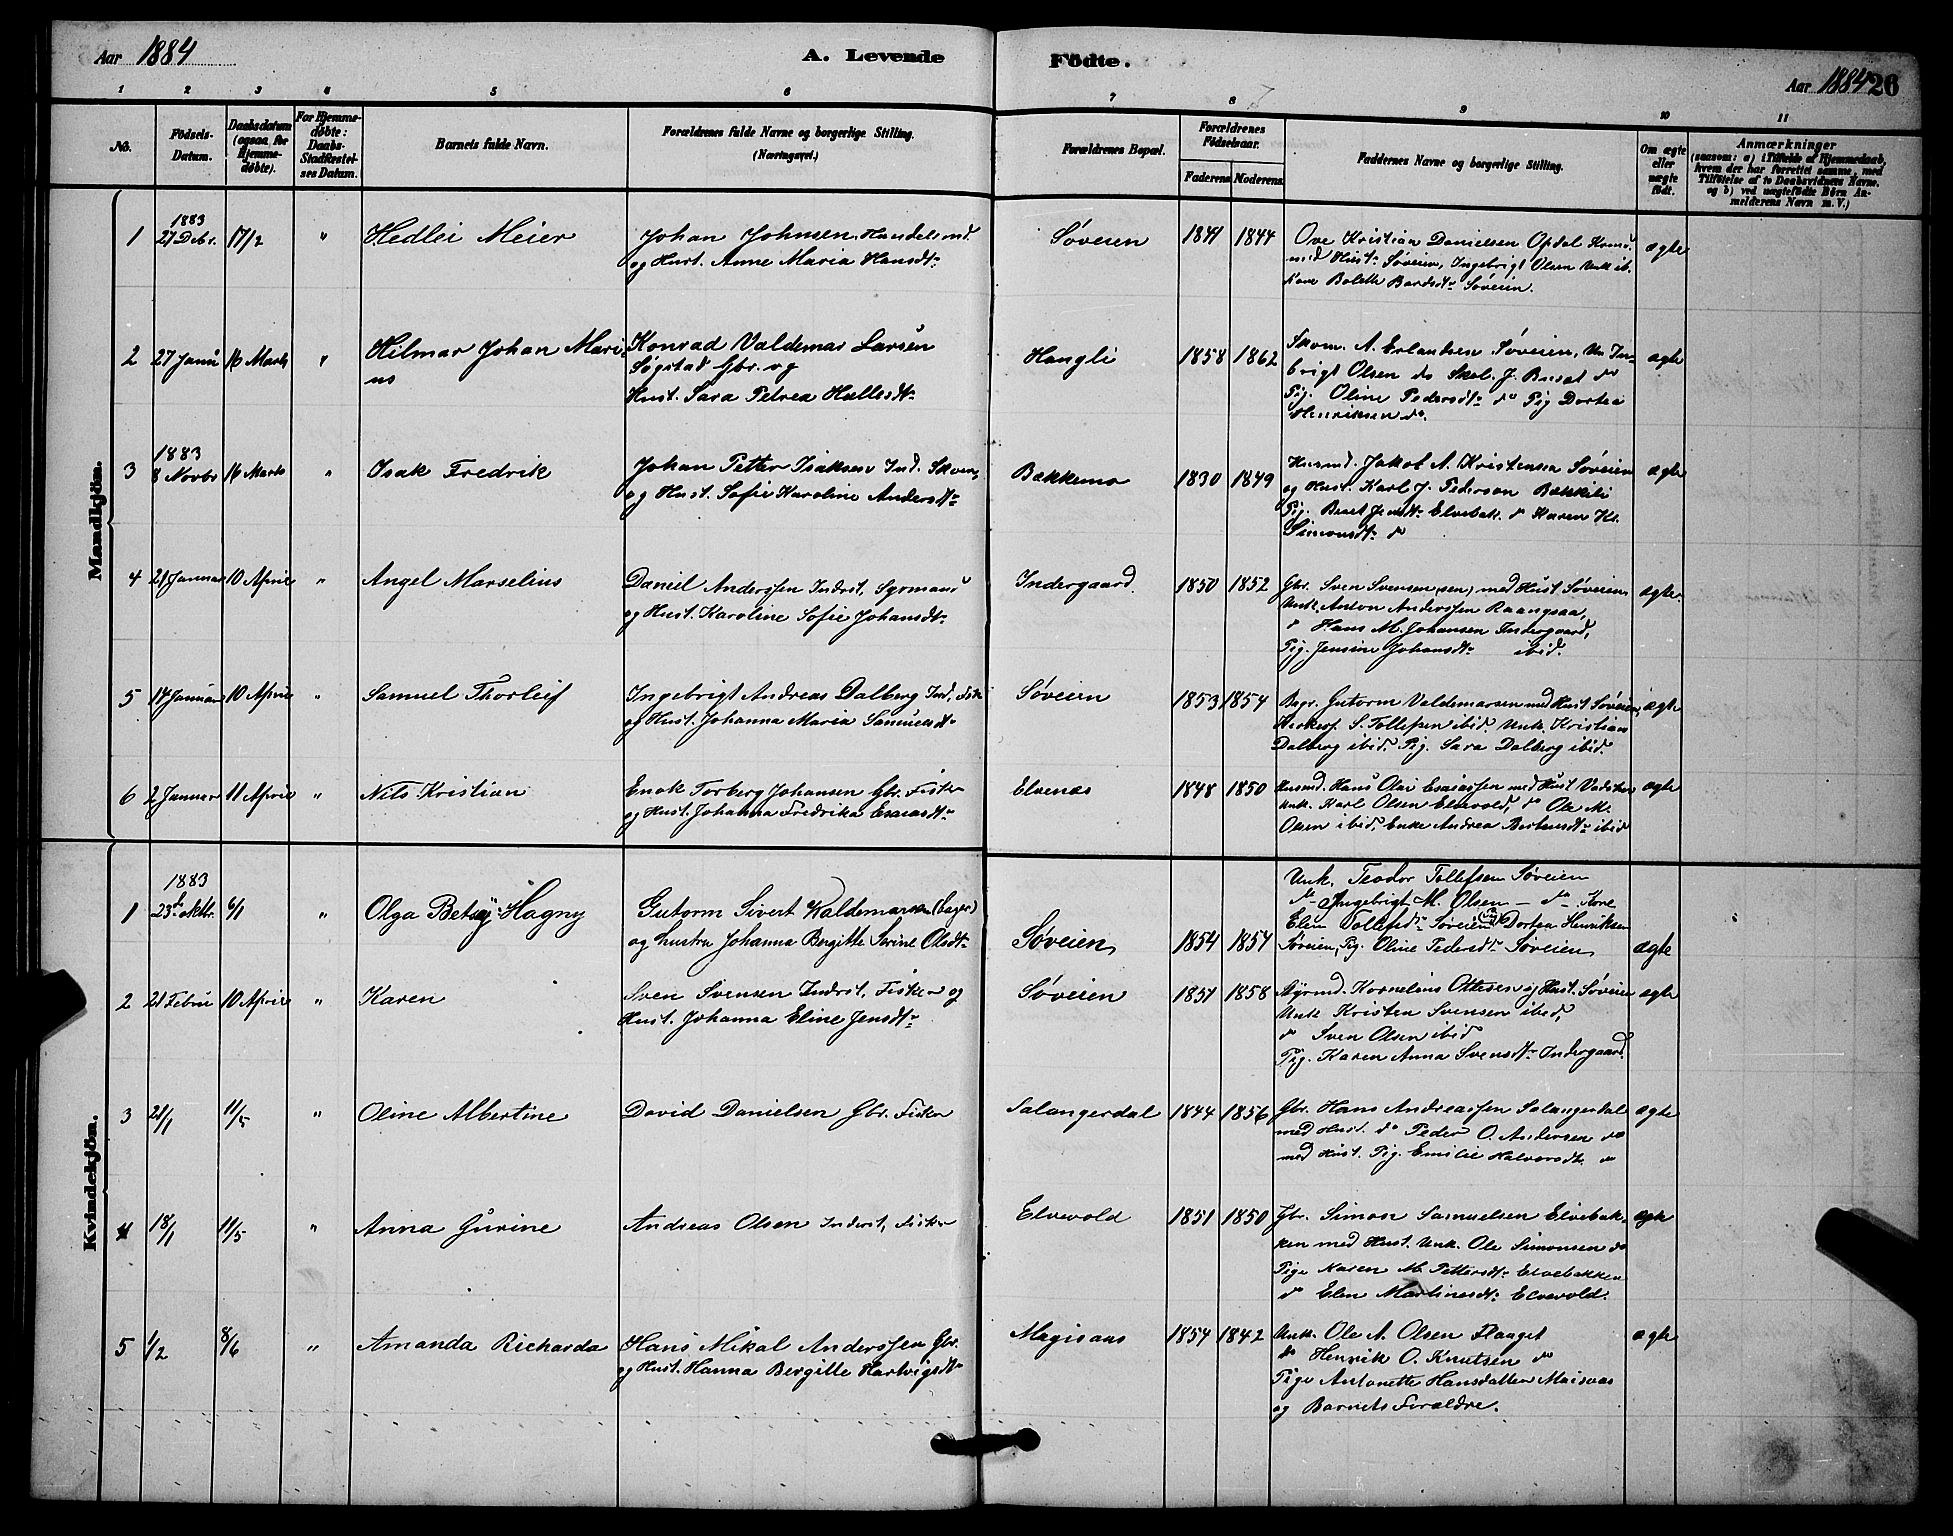 Aar 1884
A. Levende
Födte.
Aar 1884 26
1 2 3 4 5 6 7 8 9 10 11
No.
Födsels-Datum.
Daabsdatum (ogsaa for Hjemmedöbte).
For Hjemmedøbte: Daabs-Stadfæstelses Datum.
Barnets fulde Navn.
Forældrenes fulde Navne og borgerlige Stilling.
(Næringsvei.)
Forældrenes Bopæl.
Forældrenes Födselsaar.
Faderens Moderens
Faddernes Navne og borgerlige Stilling.
Om ægte eller uægte født.
Anmærkninger
(saasom: a) i Tilfælde af Hjemmedaab, hvem der har forrettet samme, med Tilføielse af to Daabsvidners Navne, og b) ved uægtefödte Börn Anmelderens Navn m. V.)
Mandkjön.
1 1883 27 Debr. 17/2 " Hedlei Meier
Johan Johnsen, Handelsmd.
og Hust. Anne Maria Hansdtr
Søveien 1841 1844
Ove Kristian Danielsen Opdal
med Hustr Søveien, Ingebrigt Olsen Unk ib.
Kone Bolette Bardsdtr Søveien.
ægte
2 27 Janu 16 Marts " Hilmar Johan Mari-
us
Konrad Valdemar Larsen
Søgstad Gbr. og
Hust. Sara Petrea Hallesdtr
Hangli 1858 1862
Skom. A. Erlandsen Søveien, Un In-
brigt Olsen do Skol. J. Busat do
Pig. Oline Pedersdtr do Pig Dortea
Henriksen do.
ægte
3 1883 8 Novbr 16 Marts " Isak Fredrik
Johan Petter Isaksen Ind. Skom,
og Hust. Sofie Karoline Andersdtr
Bækkemo 1830 1849
Husmd. Jakob A. Kristensen Søveien
og Hust. Karl J. Pederson Bækkeli
Pig. Beret Jensdtr Elvebak. do Karen Kr.
Simonsdtr do
ægte
4 21 Januar 10 April " Angel Marselius
Daniel Anderssen Indrst,
og Hust. Karoline Sofie Johansdtr
Indergaard. 1850 1852
Gbr. Sven Svensen (sen) med Hust Søveien
Unk. Anton Anderssen Raangsaa,
do Hans M. Johansen Indergaard,
Pig. Jensine Johansdtr ibid.
ægte.
5 14 Januar 10 April " Samuel Thorleif
Ingebrigt Andreas Dalberg Ind. Fisk
og Hust. Johanna Maria Samuelsdtr
Søveien 1853 1854
Bagr. Gutorm Valdemarsen med Hust Søveien,
S. Tollefsen ibid. Unk. Kristian
Dalberg ibid. Pig. Sara Dalberg ibid.
ægte
6 2 Januar 11 April " Nils Kristian
Enok Torberg Johansen Gbr. Fisker
og Hust. Johanna Fredrika Esaiasdtr
Elvenæs 1848 1850
Husmd. Hans Olai Esaiassen med Hust
Unk. Karl Olsen Elvevold, do Ole M.
Olsen ibid, Enke Andrea ibid
ægte
Kvindekjön.
1 1883 23 Oktbr. 6/1 " Olga Betsy Hagny
Gutorm Sivert Waldemarsen (bager)
og hustru Johanna Bergitte Serine Olsdtr
Søveien 1854 1857
Unk. Teodor Tollefsen Søveien
do Ingebrigt M. Olsen — do Kone
Elen Tollefsdtr Søveien Pig Dortea Henriksen
Søveien, Pig. Oline Pedersdtr Søveien
ægte
2 21 Febru 10 April " Karen
Sven Svensen Indrst, Fisker og
Hust. Johanna Eline Jensdtr
Søveien 1851 1858
Styrmd. Kornelius Ottesen og Hust. Søveien
Unk Kristen Svensen ibid,
do Sven Olsen ibid
Pig. Karen Anna Svensdtr Indergaard.
ægte
3 21/1 11/5 " Oline Albertine
David Danielsen Gbr. Fisker
Salangerdal 1844 1856
Gbr. Hans Andreassen Salangerdal
med Hust. do Peder O. Andersen do
med Hust. Pig. Emilie Halvorsdtr do
ægte
4 18/1 11/5 " Anna Gurine
Andreas Olsen Indrst, Fisker
Elvevold 1851 1850
Gbr. Simon Samuelsen Elvebak-
ken med Hust. Unk. Ole Simonsen do
Pige Karen M. Pettersdtr Elvebakken
do Elen Martinesdtr Elvevold.
ægte
5 1/2 8/6 " Amanda Richarda
Hans Mikal Anderssen Gbr.
og Hust. Hanna Bergitte Hartvigsdtr
Magisaas 1854 1842
Unk. Ole A. Olsen Flaaget
do Henrik O. Knutsen do
Pige Antonette Hansdatter Maisaas
og Barnets Forældre.
ægte